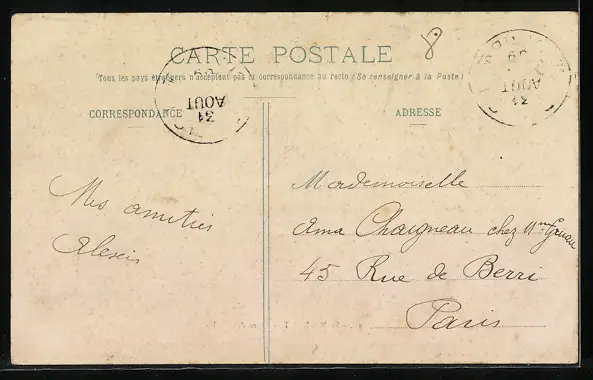 8
CARTE POSTALE
Tous les pays étrangers n'acceptent pas la correspondance au recto (Se renseigner à la Poste)
31
AOUT
31
AOUT
CORRESPONDANCE
ADRESSE
Mes amitiés
Alexis
Mademoiselle
Ama Chaigneau chez Mme
45 Rue de Berri
Paris